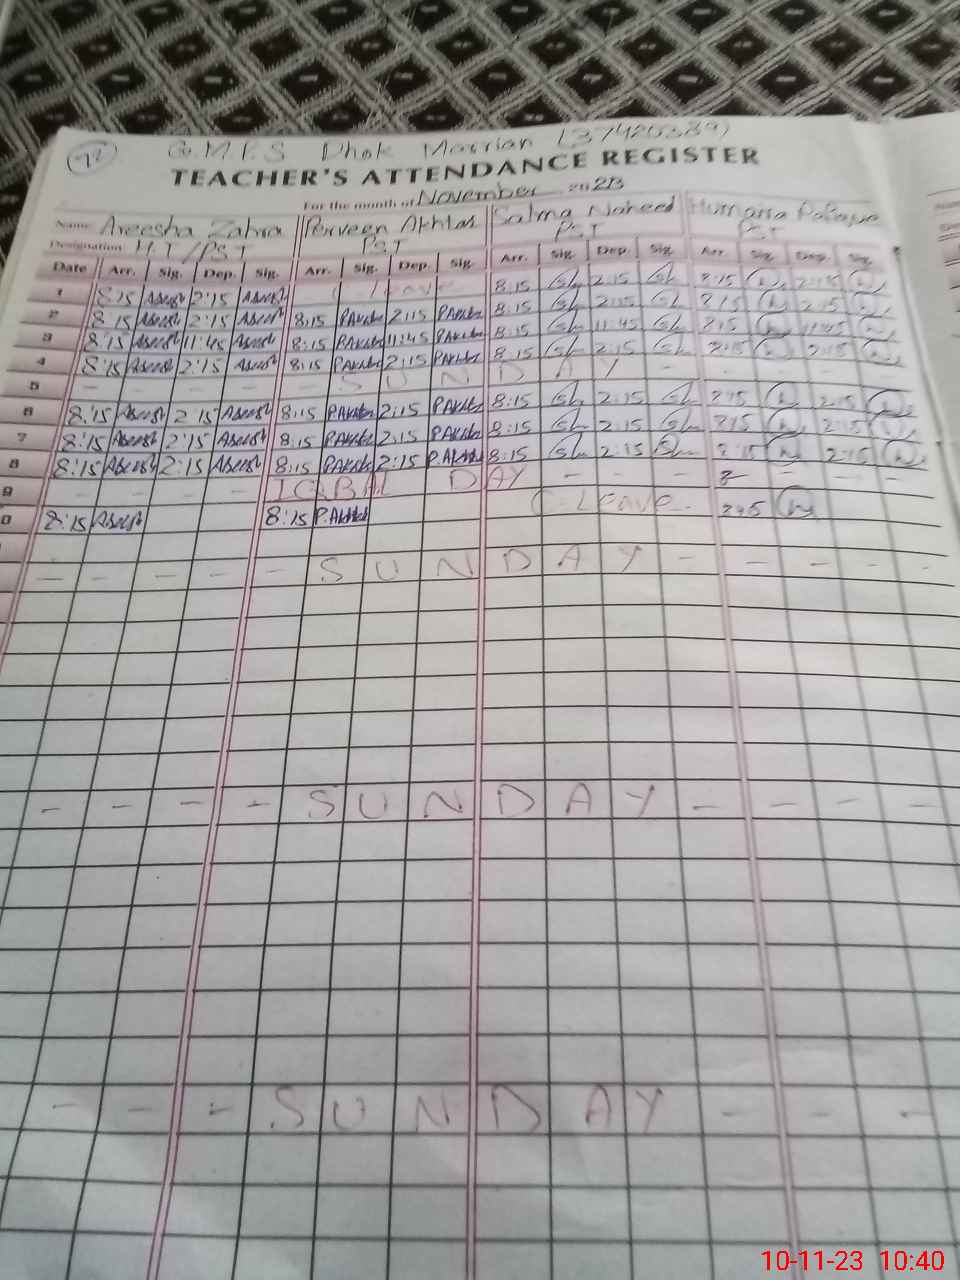 22
G.M.P.S Dhok Marrian (37420389)
TEACHER'S ATTENDANCE REGISTER
For the month of November 2023
Name Areesha Zahra Perveen Akhtar Salma Naheed Humaira
Designation H.T/PST PST PST PST
Date Arr. Sig. Dep. Sig. Arr. Sig. Dep. Sig. Arr. Sig. Dep. Sig. Arr. Sig. Dep. Sig.
1 8:15 2:15 Leave 8:15 2:15 8:15 2:15
2 8:15 2:15 8:15 PAkhtar 2:15 PAkhtar 8:15 2:15 8:15 2:15
3 8:15 11:45 8:15 PAkhtar 11:45 PAkhtar 8:15 11:45 8:15 11:45
4 8:15 2:15 8:15 PAkhtar 2:15 PAkhtar 8:15 2:15 8:15 2:15
5 - - - - - S U N D A Y - - - - -
6 8:15 2:15 8:15 PAkhtar 2:15 PAkhtar 8:15 2:15 8:15 2:15
7 8:15 2:15 8:15 PAkhtar 2:15 PAkhtar 8:15 2:15 8:15 2:15
8 8:15 2:15 8:15 PAkhtar 2:15 P.Akhtar 8:15 2:15 8:15 2:15
9 - - - - IQBAL DAY - - - - - -
0 8:15 8:15 P.Akhtar C-Leave 8:15
- - - - - S U N D A Y - - - - -
- - - - S U N D A Y - - - -
- - - S U N D A Y - - -
10-11-23 10:40